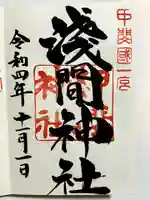 甲斐國一宮
淺間神社
令和四年十一月一日